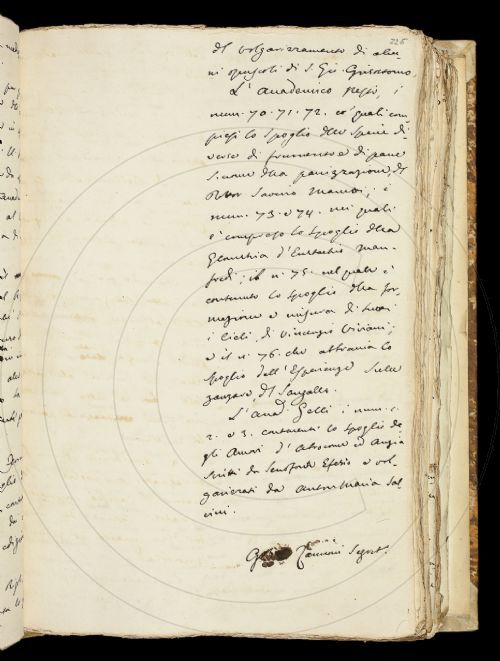 226
del volgarizzamento di alcu-
ni opuscoli di S. Gio. Grisostomo.
L'Accademico stesso, i
num. 70. 71. 72. co' quali com-
presi lo spoglio delle specie di-
verse di frumento e di pane
siccome della panizzazione, del
Saverio Manetti; i
num. 73. e 74. nei quali
è compreso lo spoglio della
d'Eustachio Man-
fredi; il n. 75. nel quale è
contenuto lo spoglio della for-
mazione e misura di tutti
i Cieli, di Vincenzio Viviani;
e il n. 76. che abbraccia lo
spoglio dell'Esperienze sulle
zanzare, del Sangallo.
L'Acad. Gelli i num. 1.
2. e 3. contenenti lo spoglio de
gli Amori d'Abrocome ed Anzia
scritti da Senofonte Efesio e vol-
garizzati da Anton Maria Sal-
vini.
Segret.